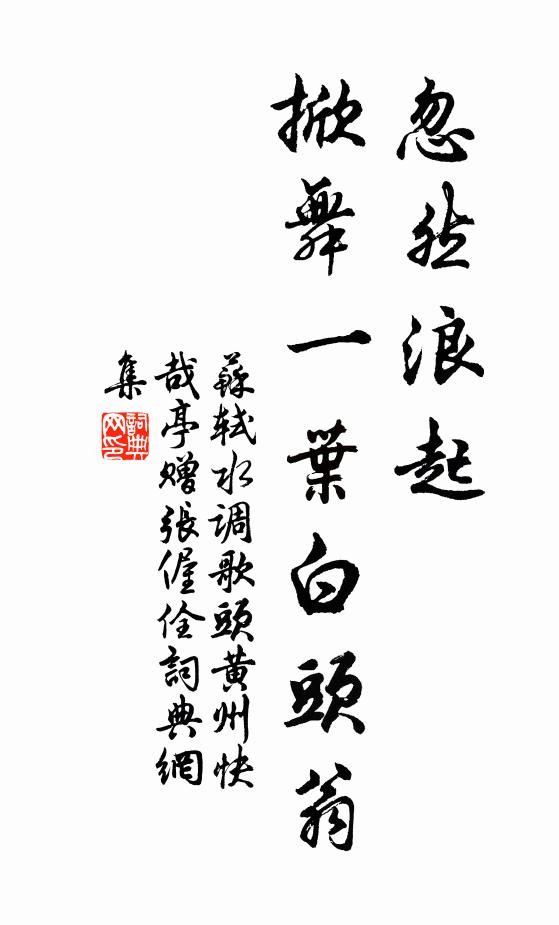 忽然浪起
掀舞一葉白頭翁
蘇軾水調歌頭黃州快
哉亭贈張偓佺詞典網
集
詞典
网印